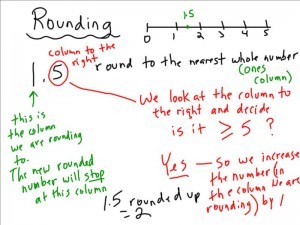 Rounding
1.5
0 1 2 3 4 5
column to the
right
1.5 round to the nearest whole number
(ones
column)
this is
the column
we are rounding
to.
The new rounded
number will stop
at this column
We look at the column to
the right and decide
is it ≥ 5 ?
Yes — so we increase
the number (in
the column we are
rounding) by 1
1.5 rounded up
= 2